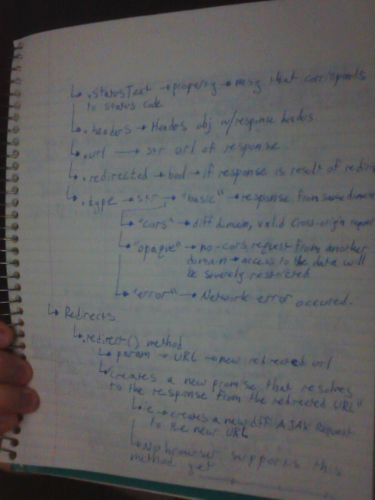 ↳ .statusText → property → msg that corrisponts
to status code
↳ .headers → Headers obj w/response headers
↳ .url → str url of response
↳ .redirected → bool → if response is result of redire
↳ .type → str → "basic" → response from same domain
↳ "cors" → diff domain, valid cross-origin request
↳ "opaque" → no-cors request from another
domain → access to the data will
be severely restricted
↳ "error" → Network error occured.
↳ Redirects
↳ .redirect() method
↳ param → URL → new redirected url
↳ "creates a new promise that resolves
to the response from the redirected URL"
↳ i.e → creates a new diff AJAX Request
to the new URL
↳ No browser supports this
method yet